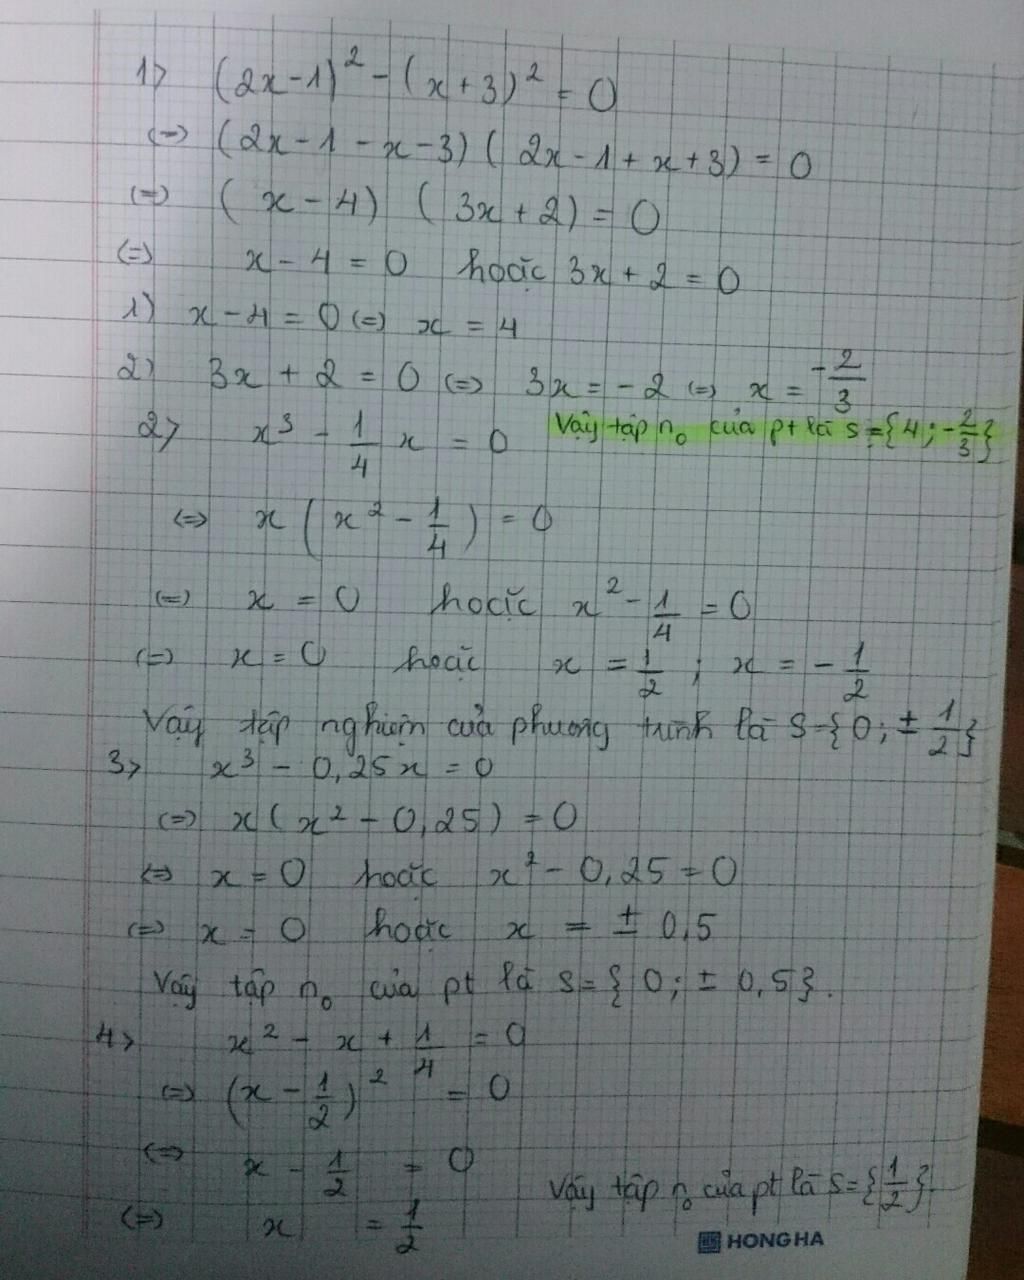 1> (2x-1)² - (x+3)² = 0
(=) (2x-1-x-3)(2x-1+x+3) = 0
(=) (x-4) (3x+2) = 0
(=) x-4 = 0 hoặc 3x+2 = 0
1) x-4 = 0 (=) x = 4
2) 3x + 2 = 0 (=) 3x = -2 (=) x = -2/3
Vậy tập n₀ của pt là S = {4; -2/3}
2> x³ - 1/4 x = 0
<=> x(x² - 1/4) = 0
(=) x = 0 hoặc x² - 1/4 = 0
(=) x = 0 hoặc x = 1/2 ; x = -1/2
Vậy tập nghiệm của phương trình là S={0; ±1/2}
3> x³ - 0,25x = 0
(=) x(x² - 0,25) = 0
<=> x = 0 hoặc x² - 0,25 = 0
(=) x = 0 hoặc x = ± 0,5
Vậy tập n₀ của pt là S={0; ± 0,5}.
4> x² - x + 1/4 = 0
(=) (x - 1/2)² = 0
(=) x - 1/2 = 0
(=) x = 1/2
Vậy tập n₀ của pt là S={1/2}.
HONG HA